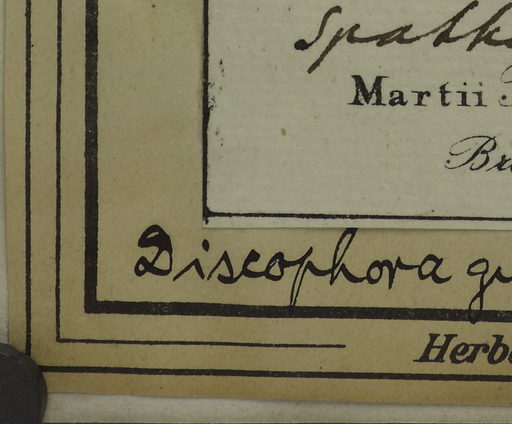 Spathe
Martii
Br
Discophora gu
Herb